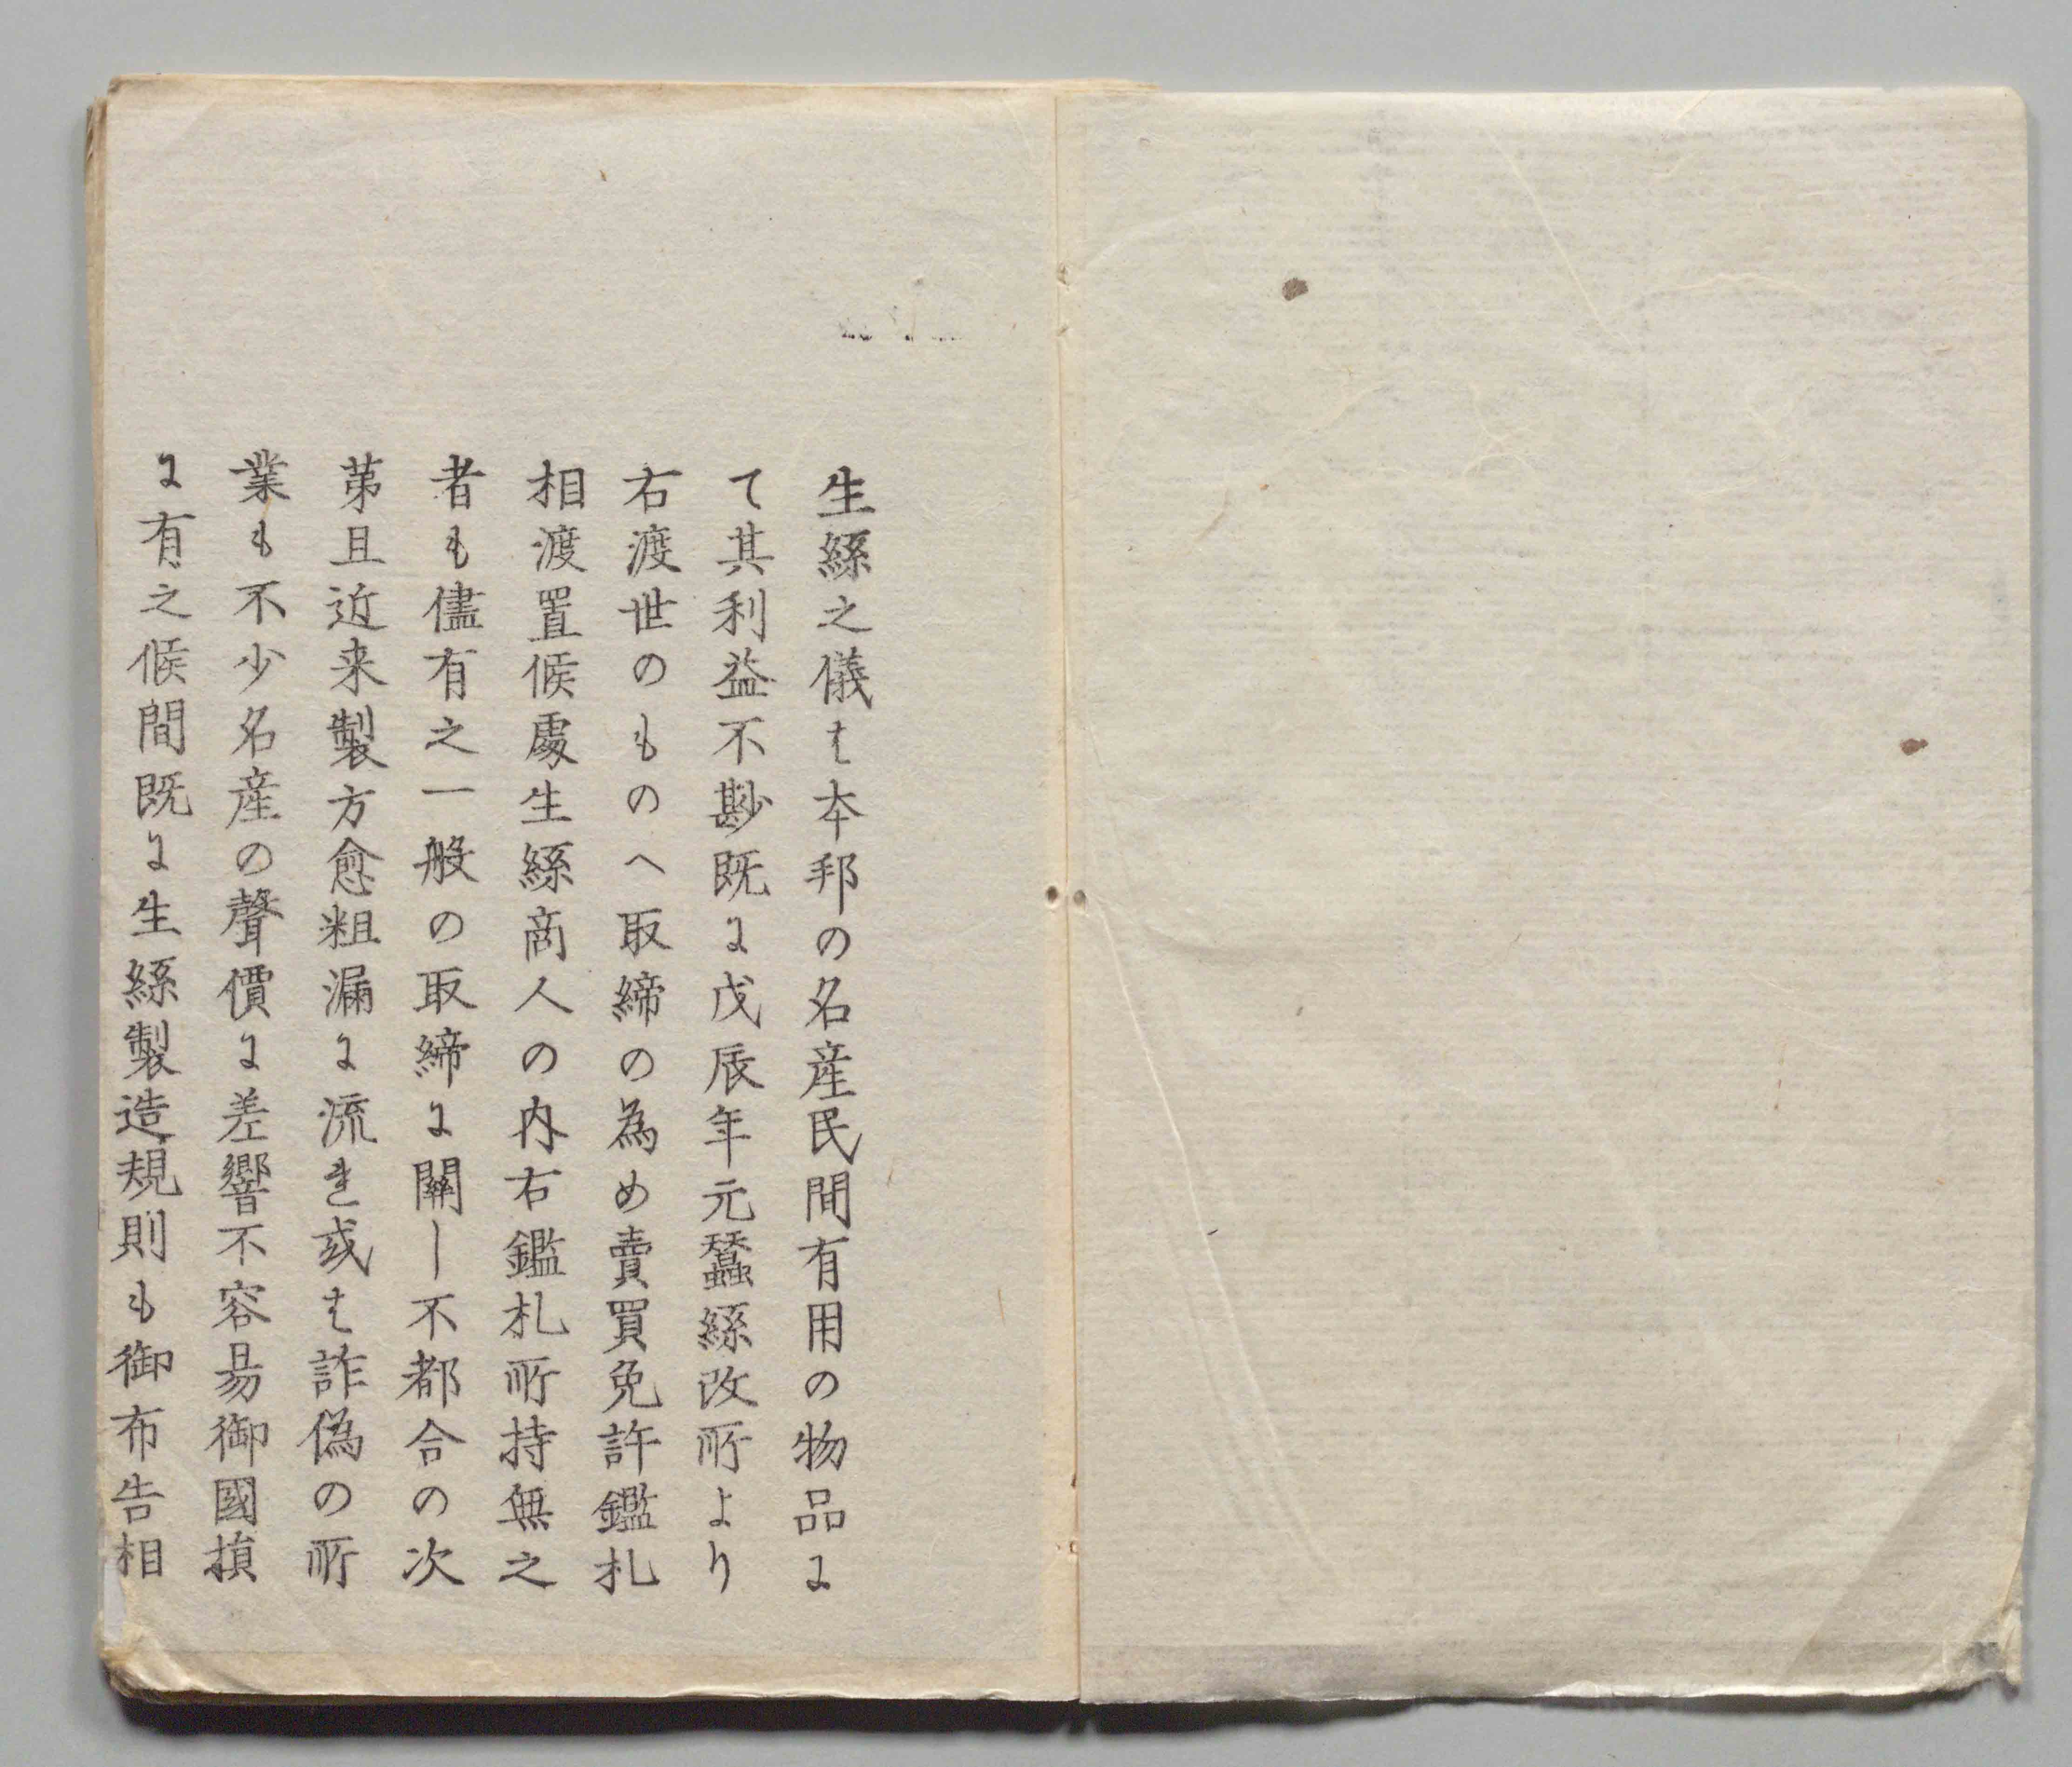 生絲之儀は本邦の名産民間有用の物品に
て其利益不尠既に戊辰年元蠶絲改所より
右渡世のものへ取締の為め賣買免許鑑札
相渡置候處生絲商人の内右鑑札所持無之
者も儘有之一般の取締に關し不都合の次
苐且近来製方愈粗漏に流れ或は詐偽の所
業も不少名産の聲價に差響不容易御國損
に有之候間既に生絲製造規則も御布告相